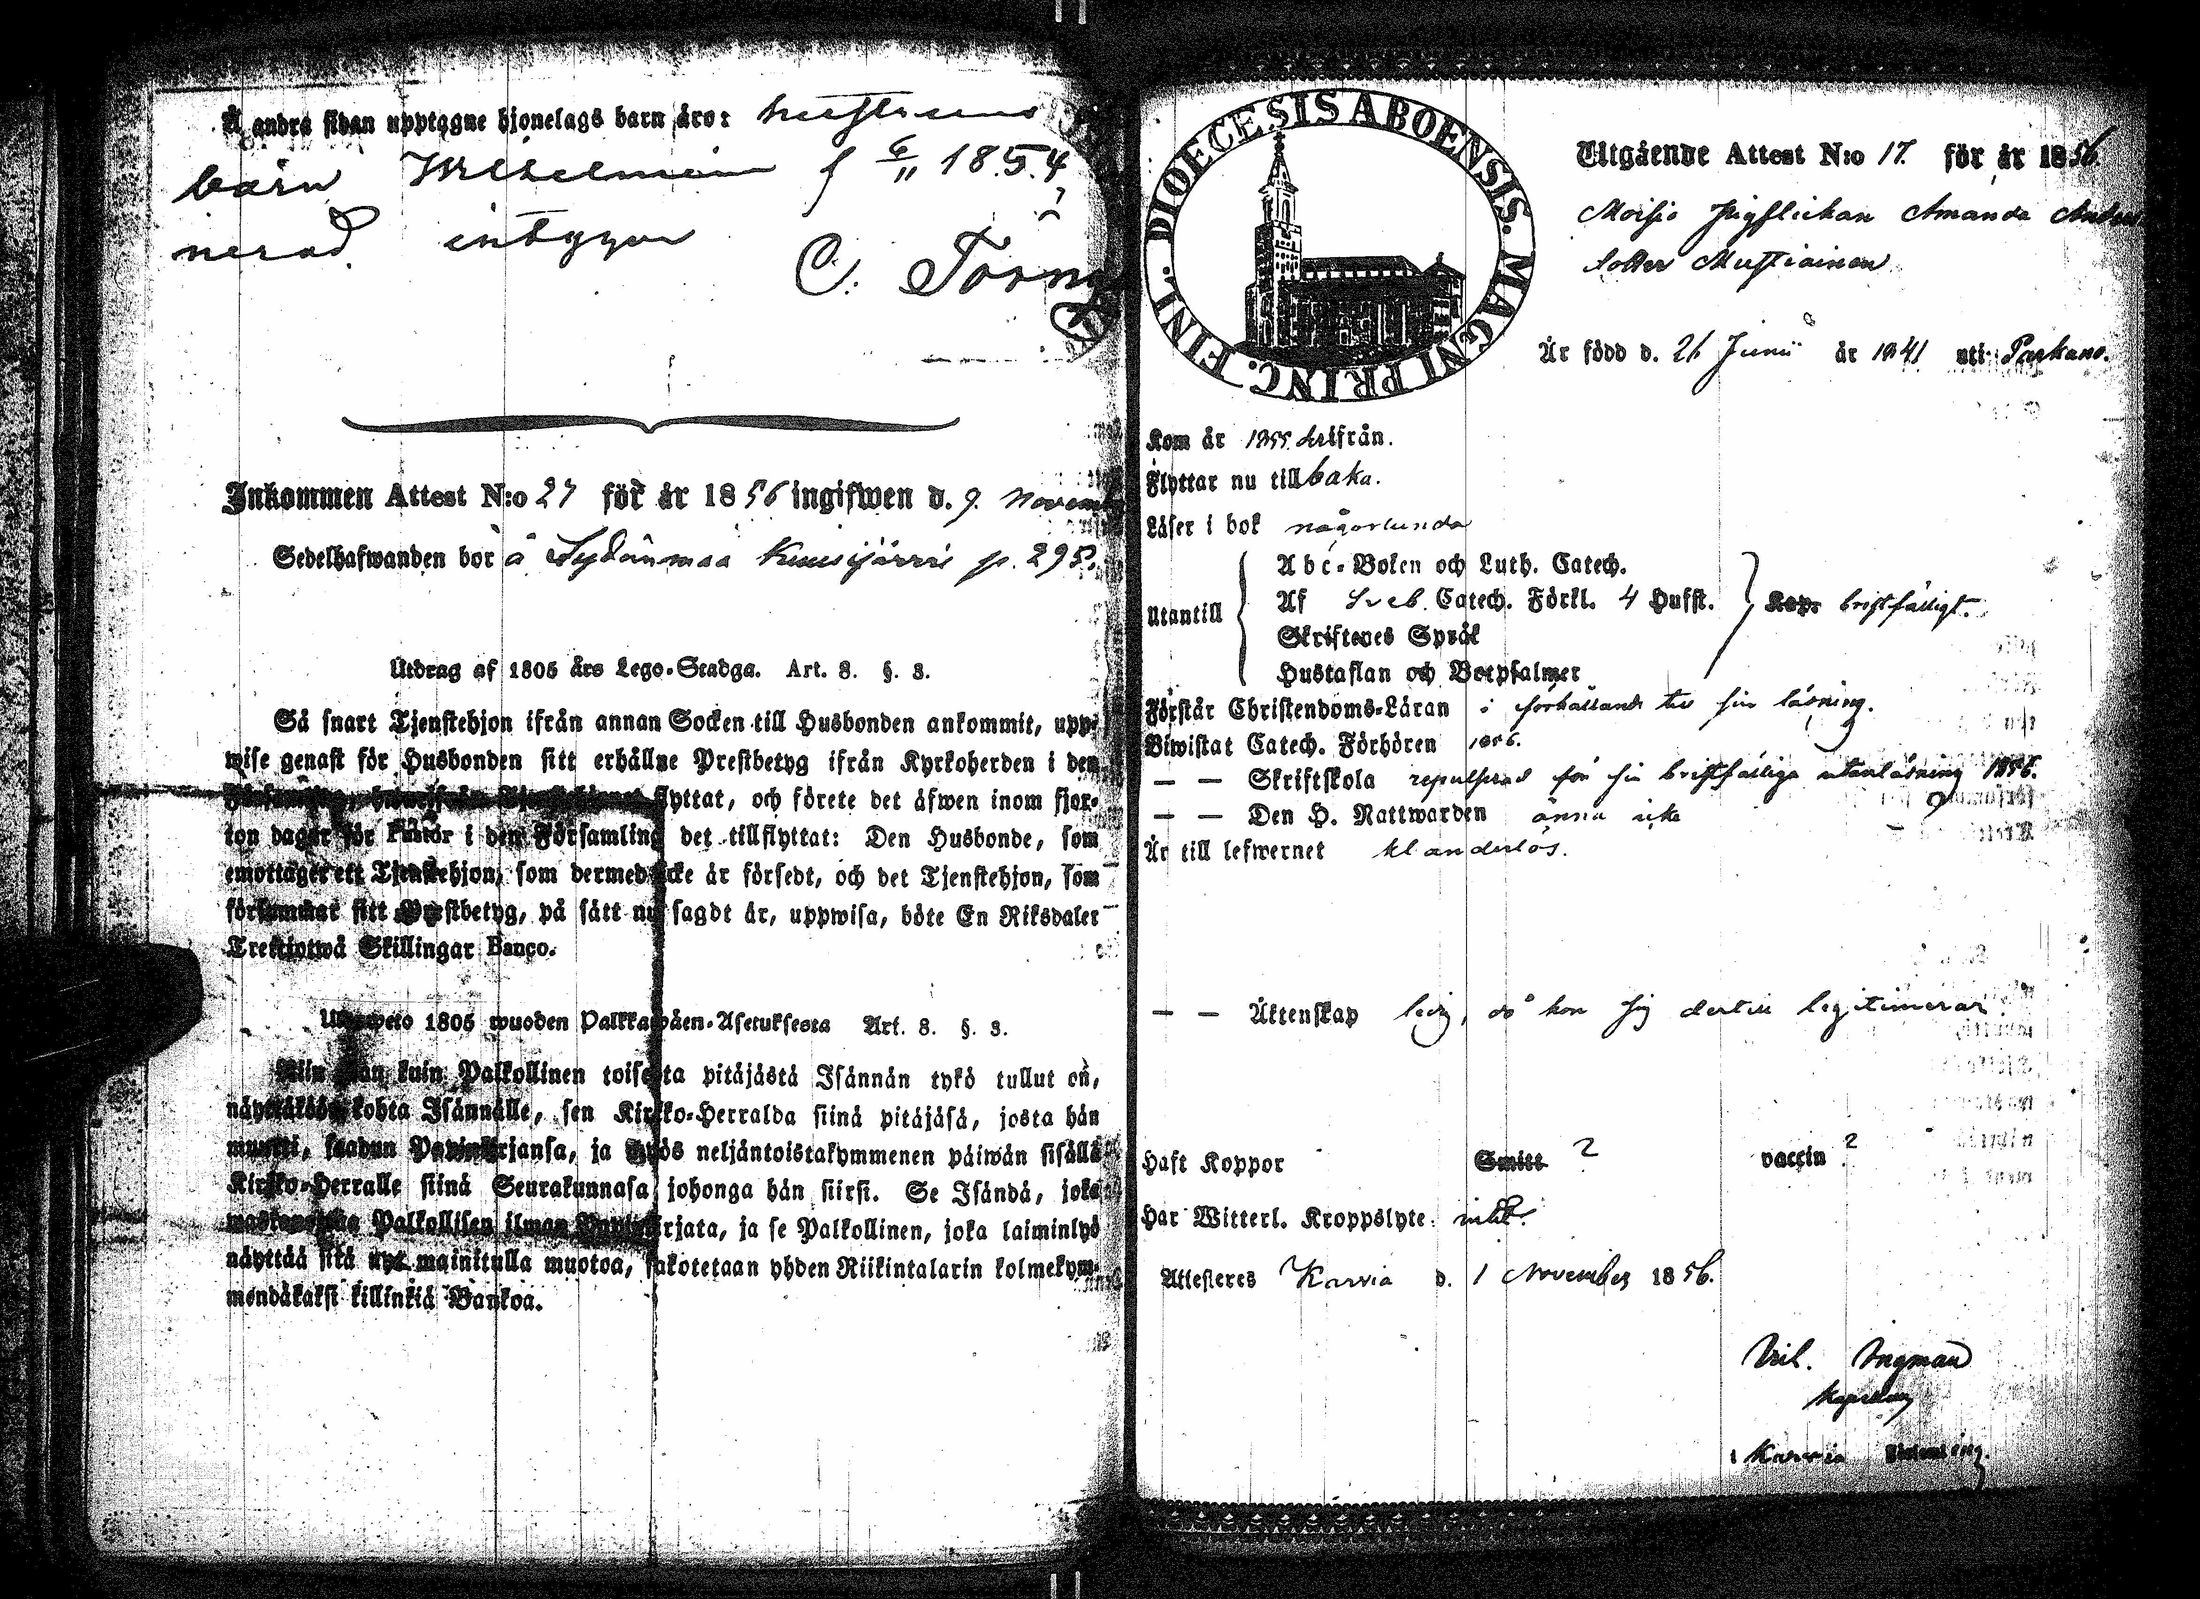 Å andra sidan upptagne hjonelags barn äro: hustruns
barn Wilhelmin f 6/11 1854
nerad intygar
C. Torn
Inkommen Attest N:o 27 för år 1856 ingifwen d. 9. Novemb
Sedelhafwanden bor å Sydänmaa Kuusijärvi p. 295.
Utdrag af 1805 års Lego-Stadga. Art. 8. §. 3.
Så snart Tjenstehjon ifrån annan Socken till Husbonden ankommit, upp-
wise genast för Husbonden sitt erhållne Prestbetyg ifrån Kyrkoherden i den
flyttat, och förete det äfwen inom fjor-
ton dagar för Pastor i den Församling det tillflyttat: Den Husbonde, som
emottager ett Tjenstehjon, som dermed icke är försedt, och det Tjenstehjon, som
försummar sitt Prestbetyg, på sätt nu sagdt är, uppwisa, böte En Riksdaler
Trettiotwå Skillingar Banco.
Ulosweto 1805 wuoden Palkkawäen-Asetuksesta Art. 8. §. 3.
Niin pian kuin Palkollinen toisesta pitäjästä Isännän tykö tullut on,
näyttäköön kohta Isännälle, sen Kirkko-Herralda siinä pitäjäsä, josta hän
muutti, saadun Papinkirjansa, ja myös neljäntoistakymmenen päiwän sisällä
Kirkko-Herralle siinä Seurakunnasa johonga hän siirsi. Se Isändä, joka
wastaanottaa Palkollisen ilman Papinkirjata, ja se Palkollinen, joka laiminlyö
näyttää sitä nyt mainitulla muotoa, sakotetaan yhden Riikintalarin kolmekym-
mendäkaksi killinkiä Bankoa.
DIOECESIS ABOENSIS. MAGNI PRINC. FINL.
Utgående Attest N:o 17. för år 1856.
Moisio Pigflickan Amanda Anders
dotter Mustiainen
Är född d. 26 Junii år 1841 uti Parkano.
Kom år 1855 derifrån.
Flyttar nu tillbaka.
Läser i bok någorlunda
Utantill
Abc-Boken och Luth. Catech.
Af Sveb. Catech. Förkl. 4 Hufst.
Kap. bristfälligt.
Skriftenes Språk
Hustaflan och Botpsalmer
Förstår Christendoms-Läran i förhållande till sin läsning.
Biwistat Catech. Förhören 1856.
— — Skriftskola repulserad för sin bristfälliga utanläsning 1856.
— — Den H. Nattwarden ännu icke
Är till lefwernet klanderlös.
— — Äktenskap ledig, då hon sig dertill legitimerar.
Haft Koppor Smitt ? vaccin ?
Har Witterl. Kroppslyte intet.
Attesteres Karvia d. 1 November 1856.
Vil. Ingman
Kapellan
i Karvia